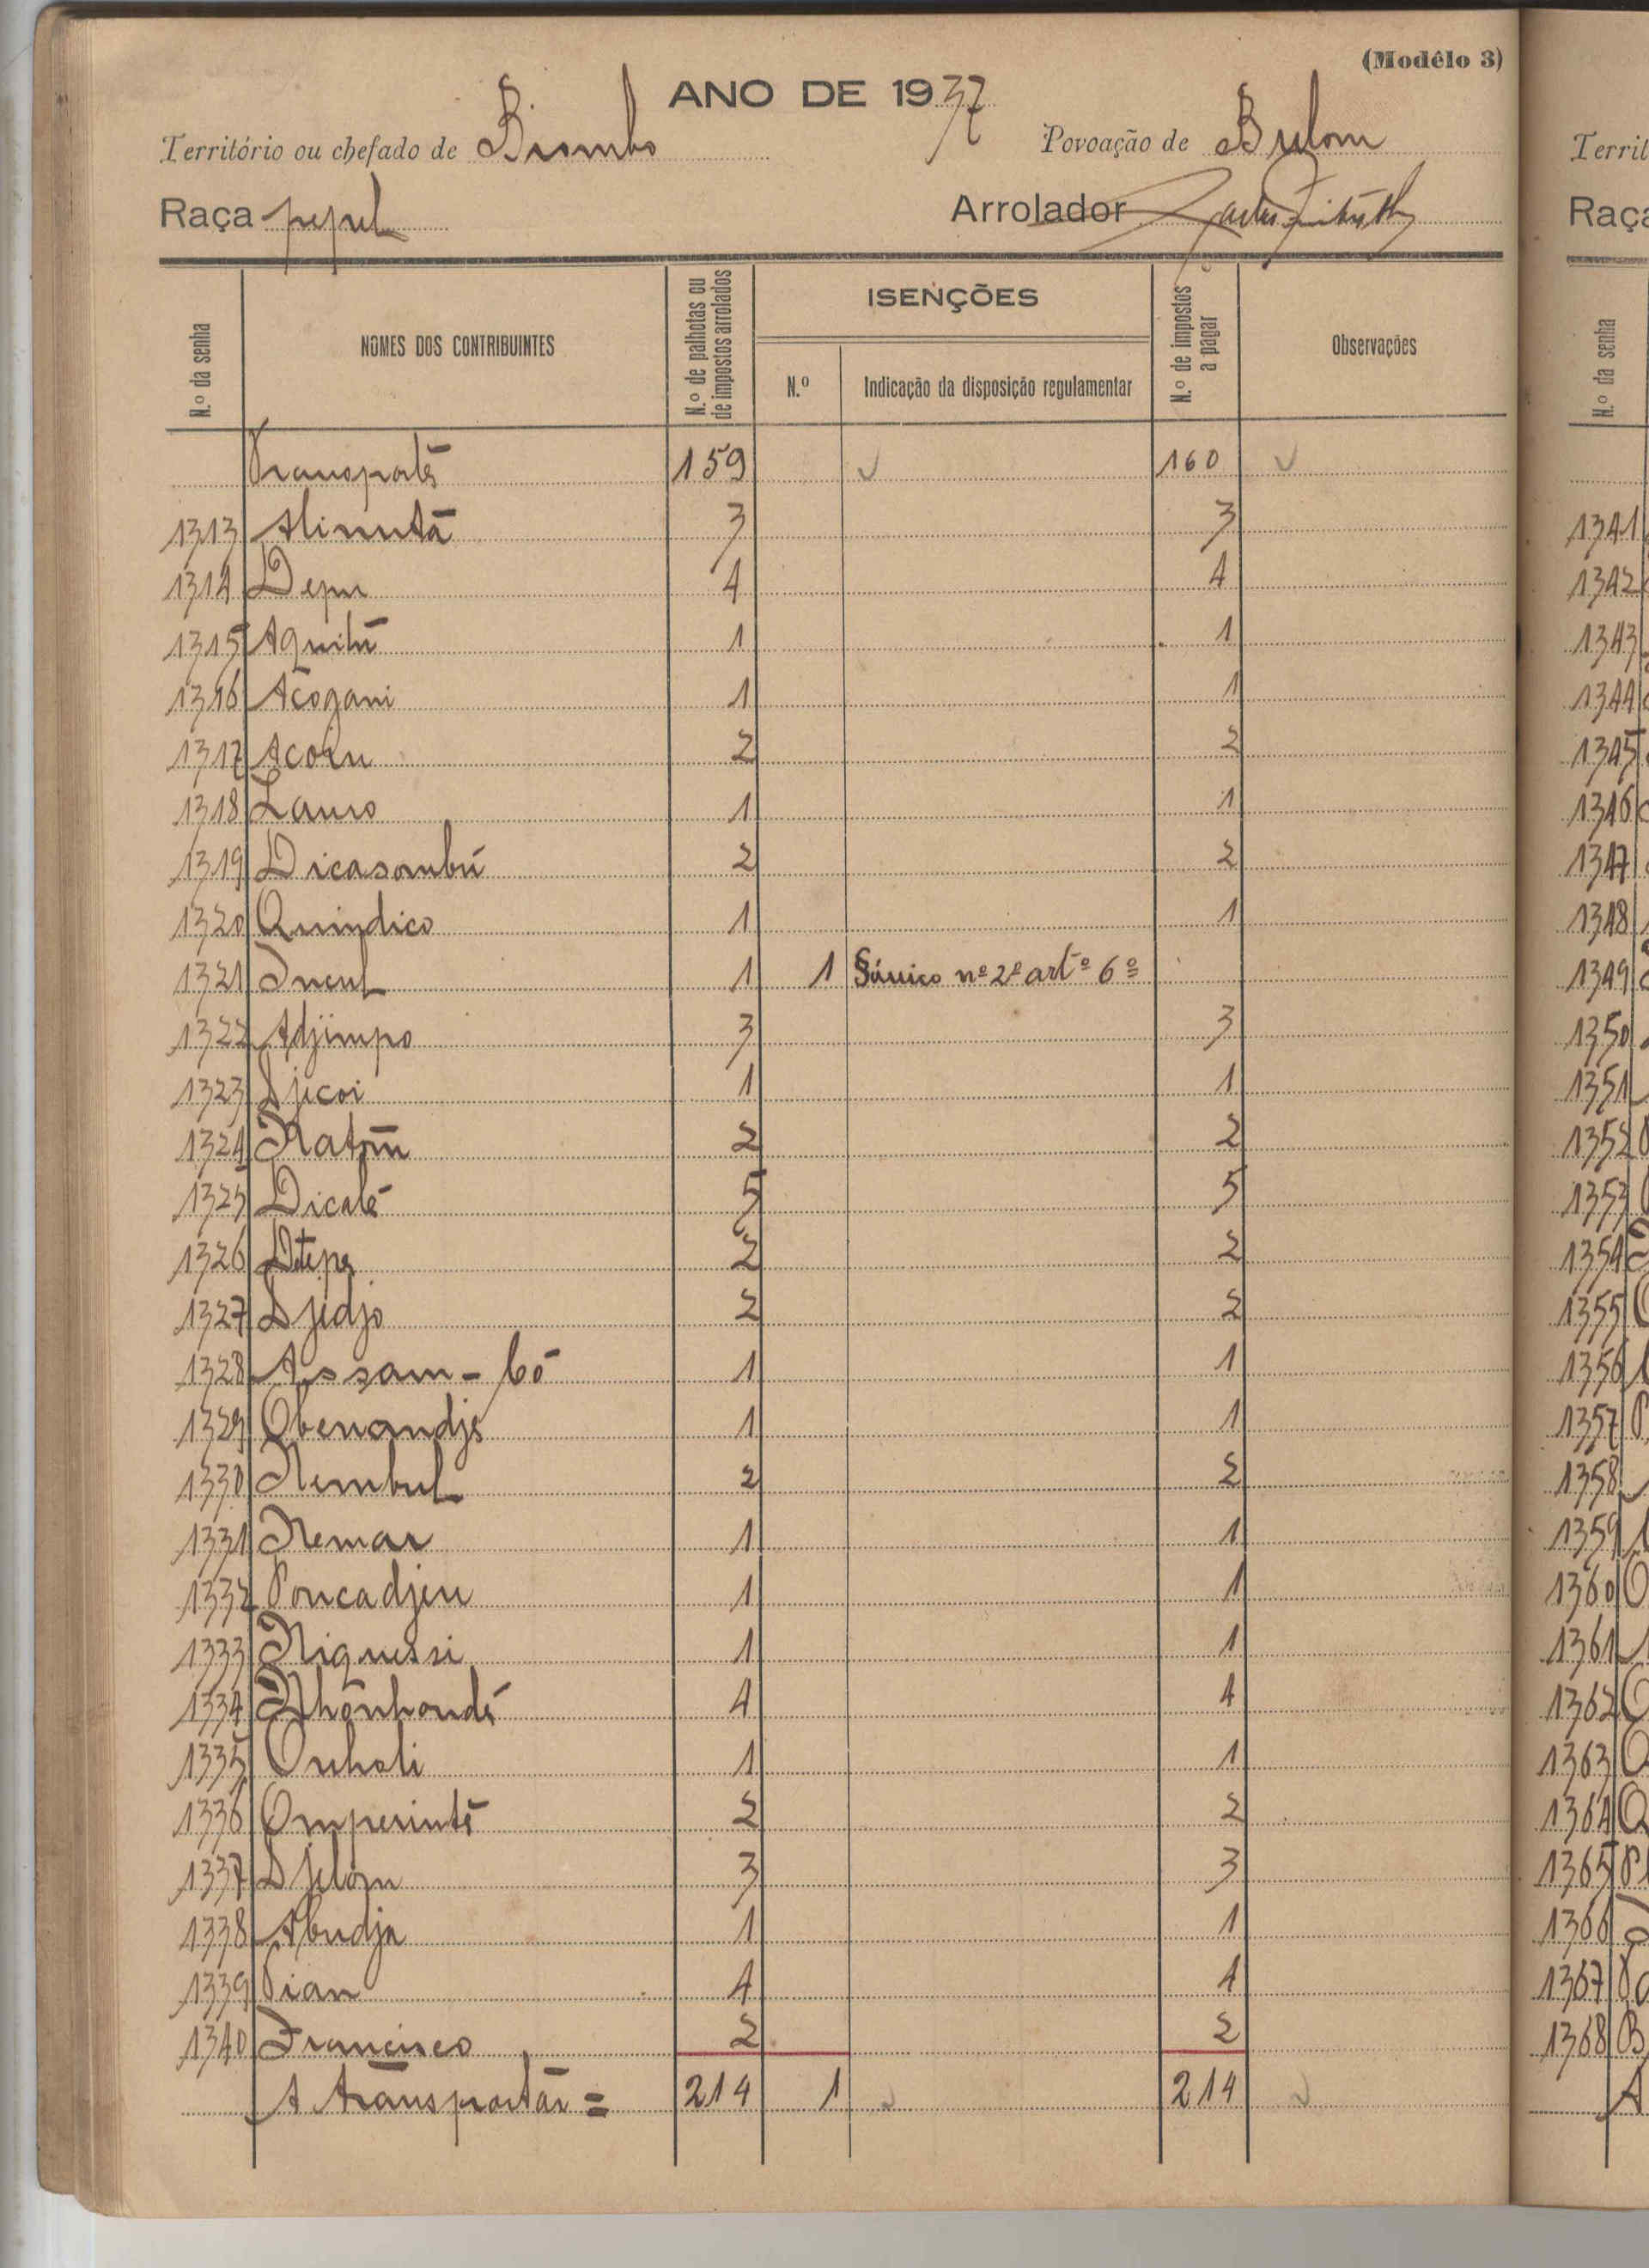 (Modêlo 3)
ANO DE 1937
Território ou chefado de Biombo Povoação de Bulom
Raça pepel Arrolador
N.º da senha NOMES DOS CONTRIBUINTES N.º de palhotas ou de impostos arrolados ISENÇÕES N.º Indicação da disposição regulamentar N.º de impostos a pagar Observações
Transporte 159 160
1313 Alinutã 3 3
1314 Depu 4 4
1315 Aquilü 1 1
1316 Acogani 1 1
1317 Acoiu 2 2
1318 Lauso 1 1
1319 Dicasombú 2 2
1320 Quindico 1 1
1321 Incul 1 1 § único nº 2º artº 6º
1322 Adjimpo 3 3
1323 Djicoi 1 1
1324 Natom 2 2
1325 Dicalé 5 5
1326 2 2
1327 Djidjo 2 2
1328 Assam-bó 1 1
1329 Obenandjo 1 1
1330 Nembul 2 2
1331 Nemar 1 1
1332 Poucadjeu 1 1
1333 Niquessi 1 1
1334 Nhonhondé 4 4
1335 Onholi 1 1
1336 Omperinté 2 2
1337 Djelom 3 3
1338 Abudja 1 1
1339 Pian 4 4
1340 Francisco 2 2
A transportar = 214 1 214
Territ
Raça
N.º da senha
1341
1342
1343
1344
1345
1346
1347
1348
1349
1350
1351
1352
1353
1354
1355
1356
1357
1358
1359
1360
1361
1362
1363
1364
1365
1366
1367
1368 B
A